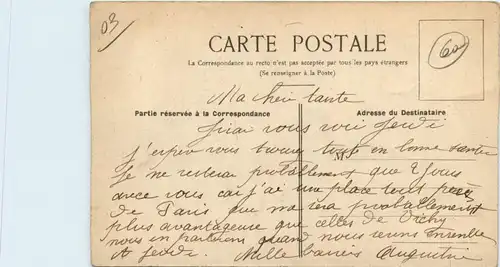 03
60
CARTE POSTALE
La Correspondance au recto n'est pas acceptée par tous les pays étrangers
(Se renseigner à la Poste)
Ma chère tante
Partie réservée à la Correspondance
Adresse du Destinataire
J'irai vous voir Jeudi
M
j'espère vous trouver tous en bonne santé
Je ne resterai probablement que 2 jours
avec vous car j'ai une place tout près
de Paris que me sera probablement
plus avantageuse que celles de Vichy
nous en parlerons quand nous serons Ensemble
A Jeudi. Mille baisers Augustine